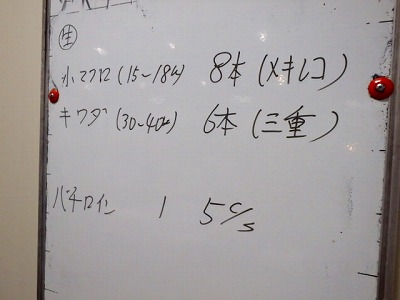 生
小マグロ(15~18㎏) 8本(メキシコ)
キワダ(30~40㎏) 6本(三重)
バチロイン 1 5c/s